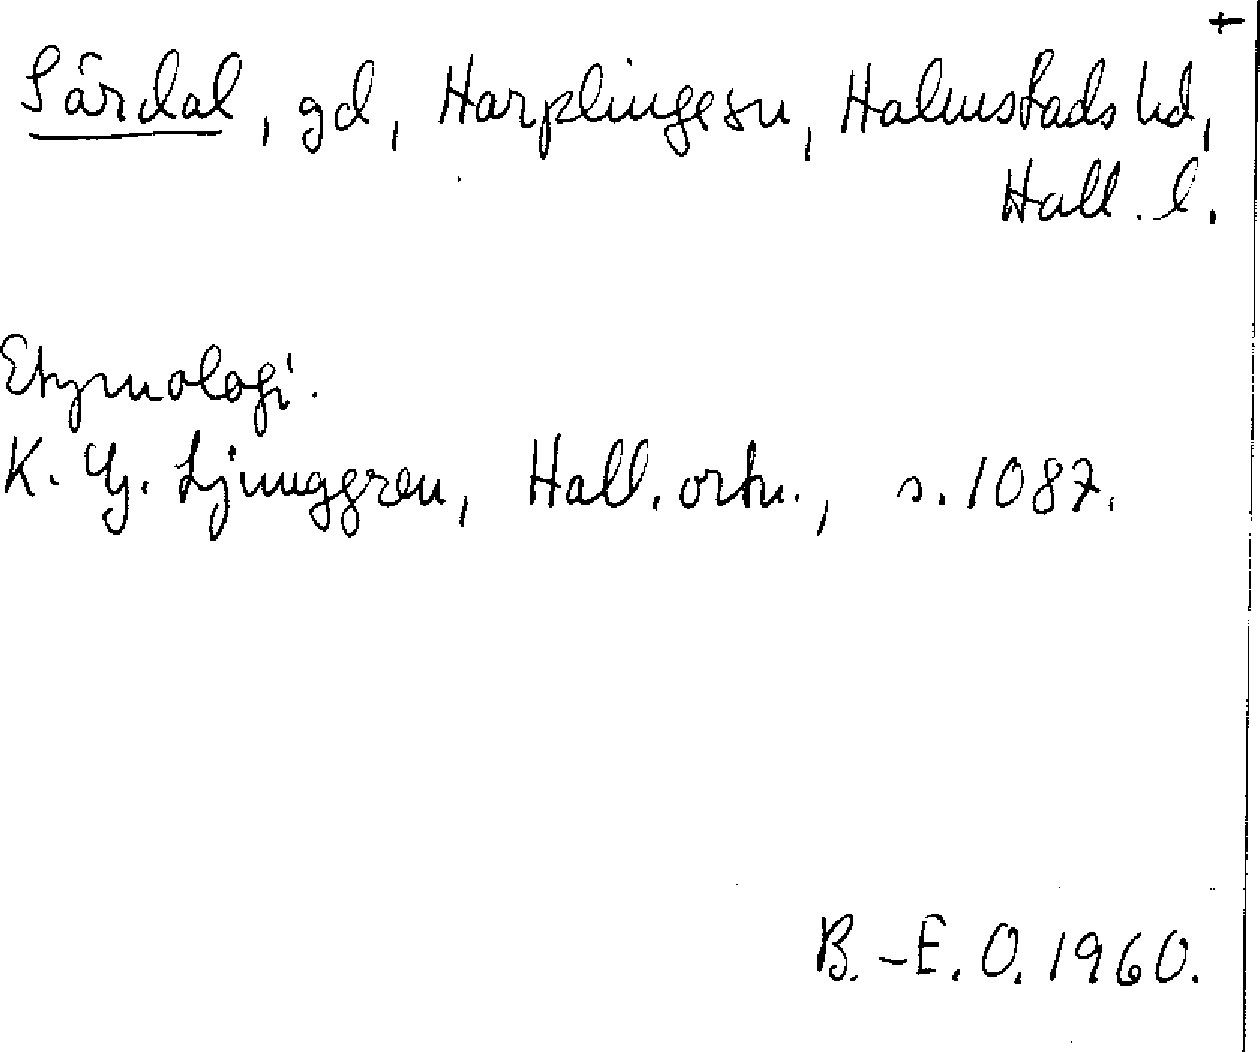 +
Särdal, gd, Harplinge sn, Halmstads hd,
Hall. l.
Etymologi.
K. G. Ljunggren, Hall. ortn., s. 1087.
B.-E. O. 1960.